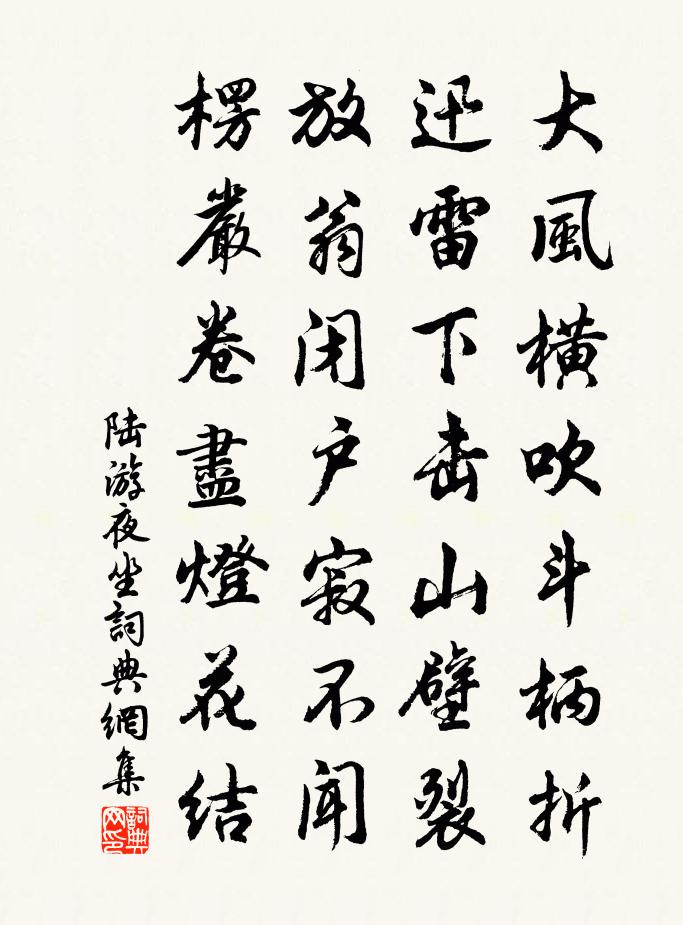 大風橫吹斗柄折
迅雷下击山壁裂
放翁闭户寂不闻
楞嚴卷盡燈花结
陆游夜坐詞典網集
詞典网印